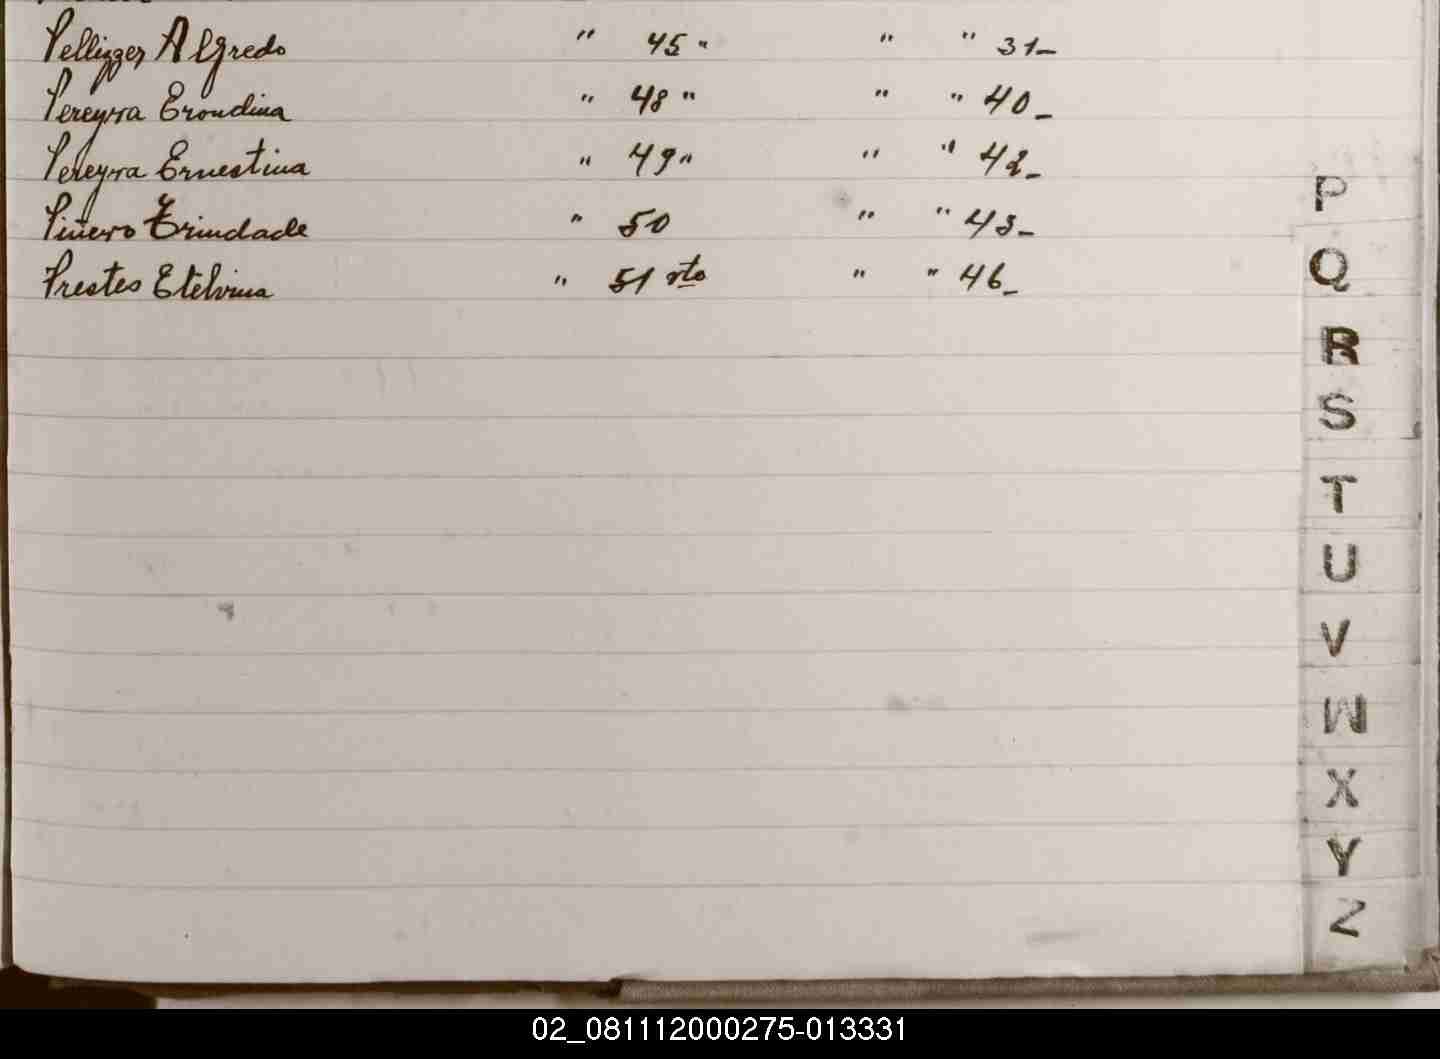 Pellizzer Alfredo " 45 " " " 31_
Pereyra Erondina " 48 " " " 40_
Pereyra Ernestina " 49 " " " 42_
Piñeyro Trindade " 50 " " 43_
Prestes Etelvina " 51 vto " " 46_
P
Q
R
S
T
U
V
W
X
Y
Z
02_081112000275-013331